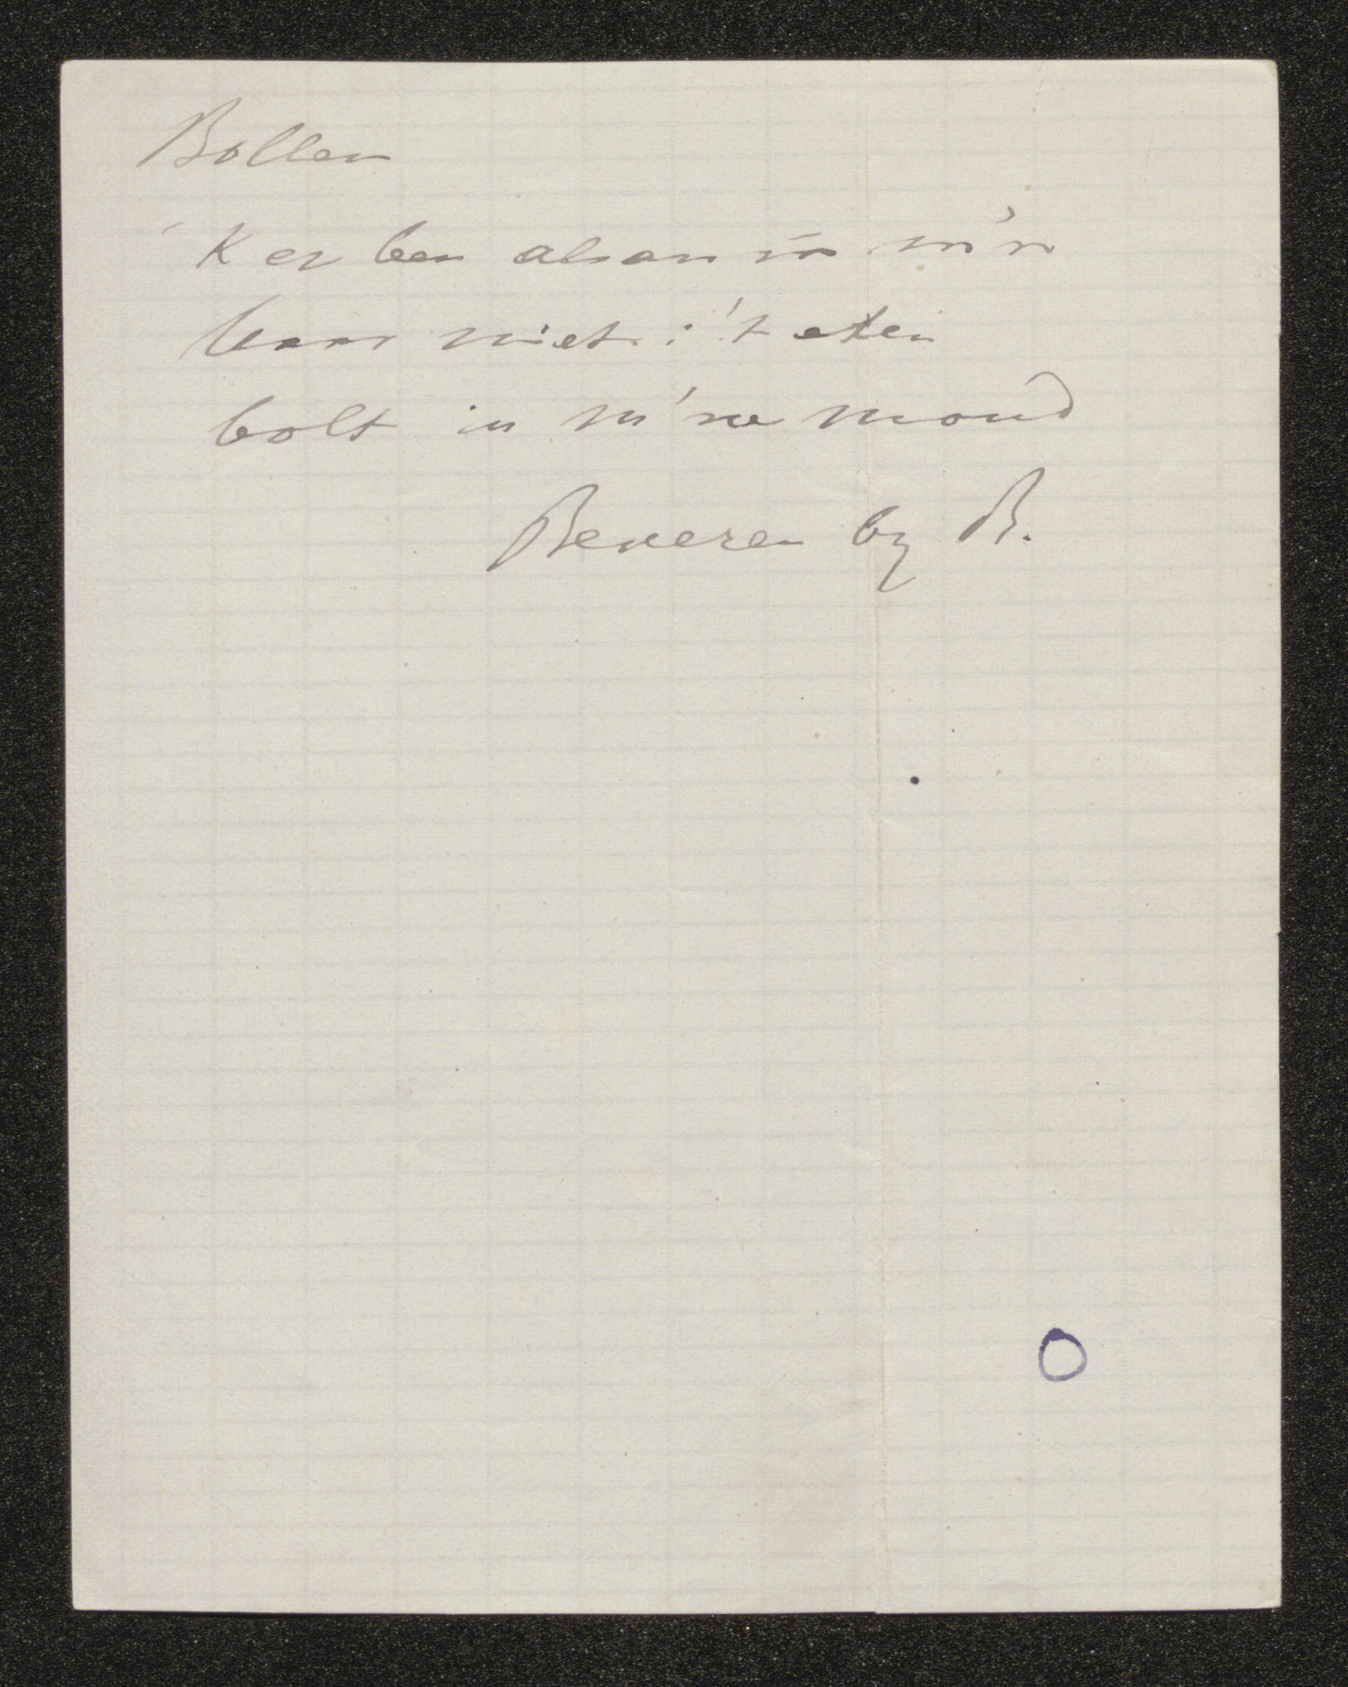 Bollen
'K en ben alsan in m'n
haar niet: 't eten
bolt in m'ne mond
Beveren by R.